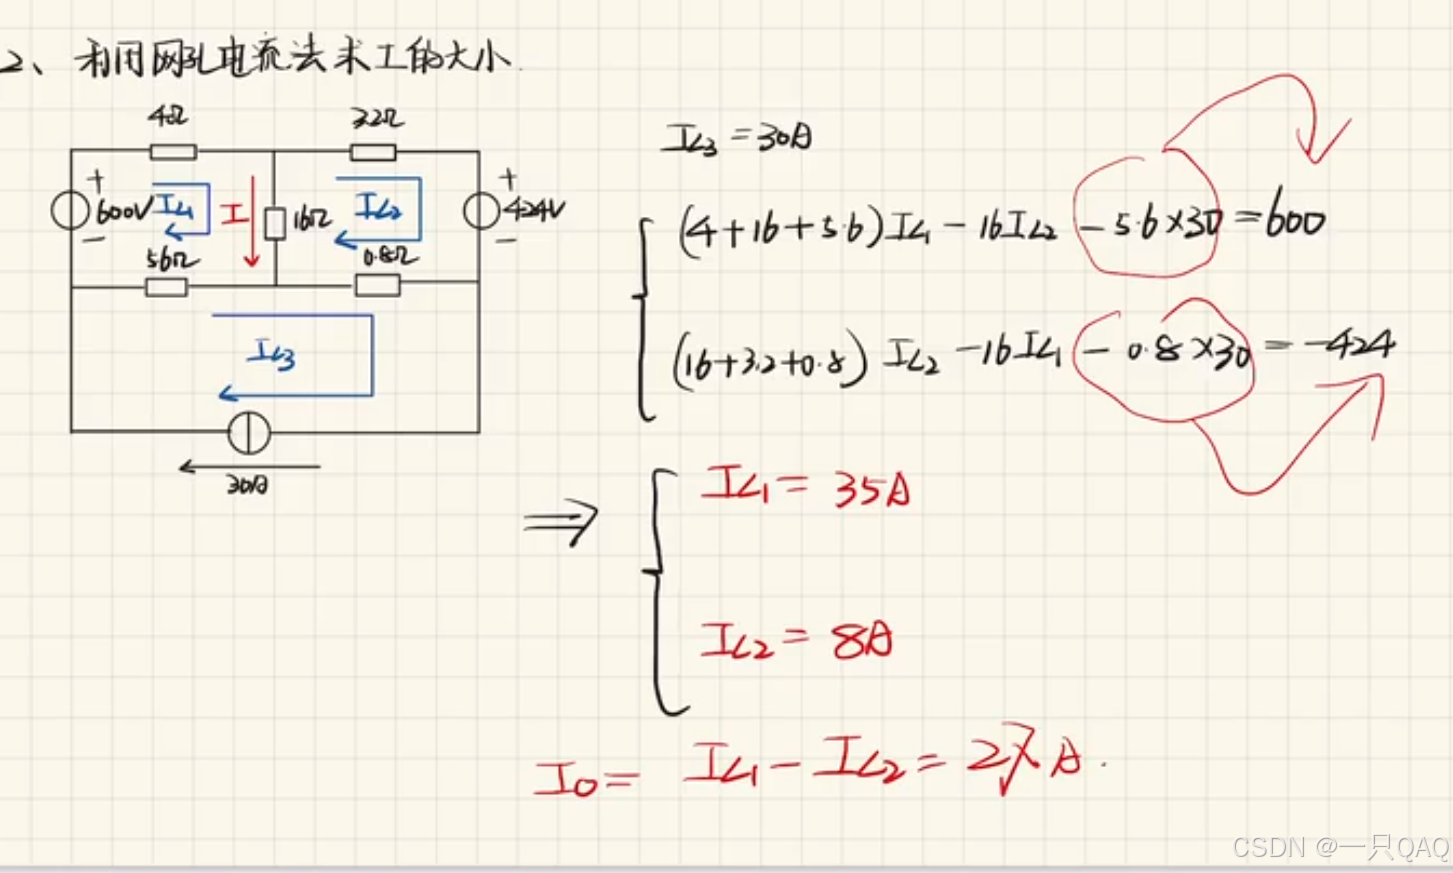 2、利用网孔电流法求I的大小.
4Ω
3.2Ω
+
600V
-
IL1
I
16Ω
IL2
+
424V
-
5.6Ω
0.8Ω
IL3
30A
IL3=30A
(4+16+5.6)IL1-16IL2-5.6×30=600
(16+3.2+0.8)IL2-16IL1-0.8×30=-424
⇒
IL1=35A
IL2=8A
I0=IL1-IL2=27A.
CSDN @一只QAQ